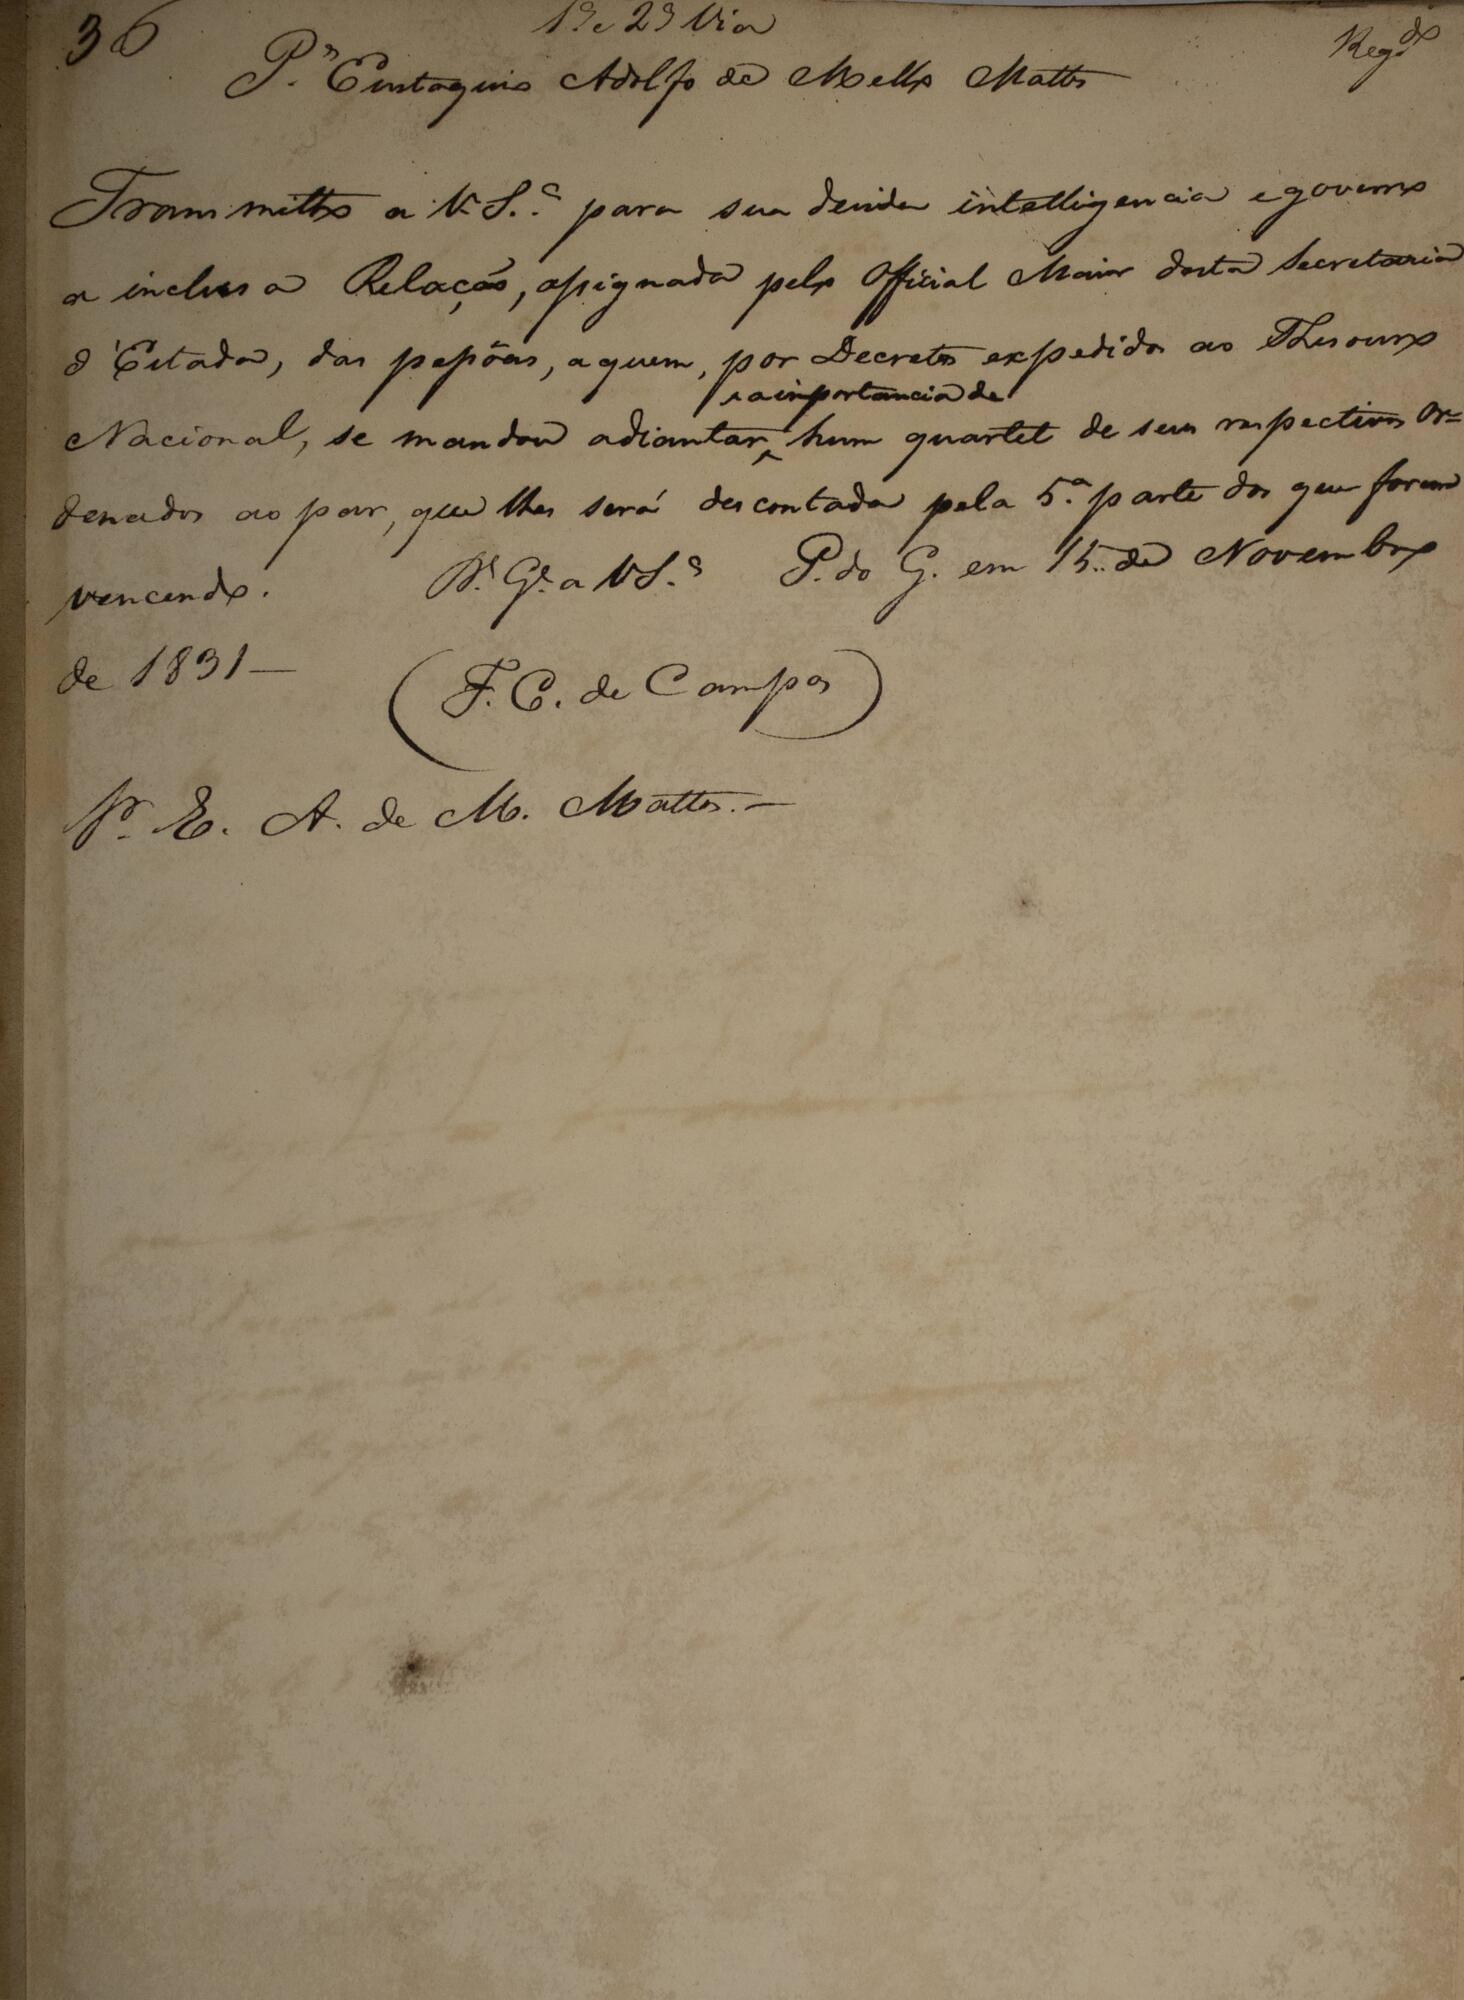 36
1ª e 2ª Via
Regdo
P.ª Eustaquio Adolfo de Mello Mattos
Transmitto a V. S.ª para sua devida intelligencia e governo
a inclusa Relação, assignada pelo Official Maior desta Secretaria
d'Estado, das pessôas, a quem, por Decretos expedidos ao Thesouro
a importancia de
Nacional, se mandou adiantar hum quartel de seus respectivos Or-
denados ao par, que lhes será descontada pela 5.ª parte dos que forem
vencendo. D.s G.e a V. S.ª P. do G. em 15 de Novembro
de 1831 —
(F. C. de Campos)
Sr. E. A. de M. Mattos. —